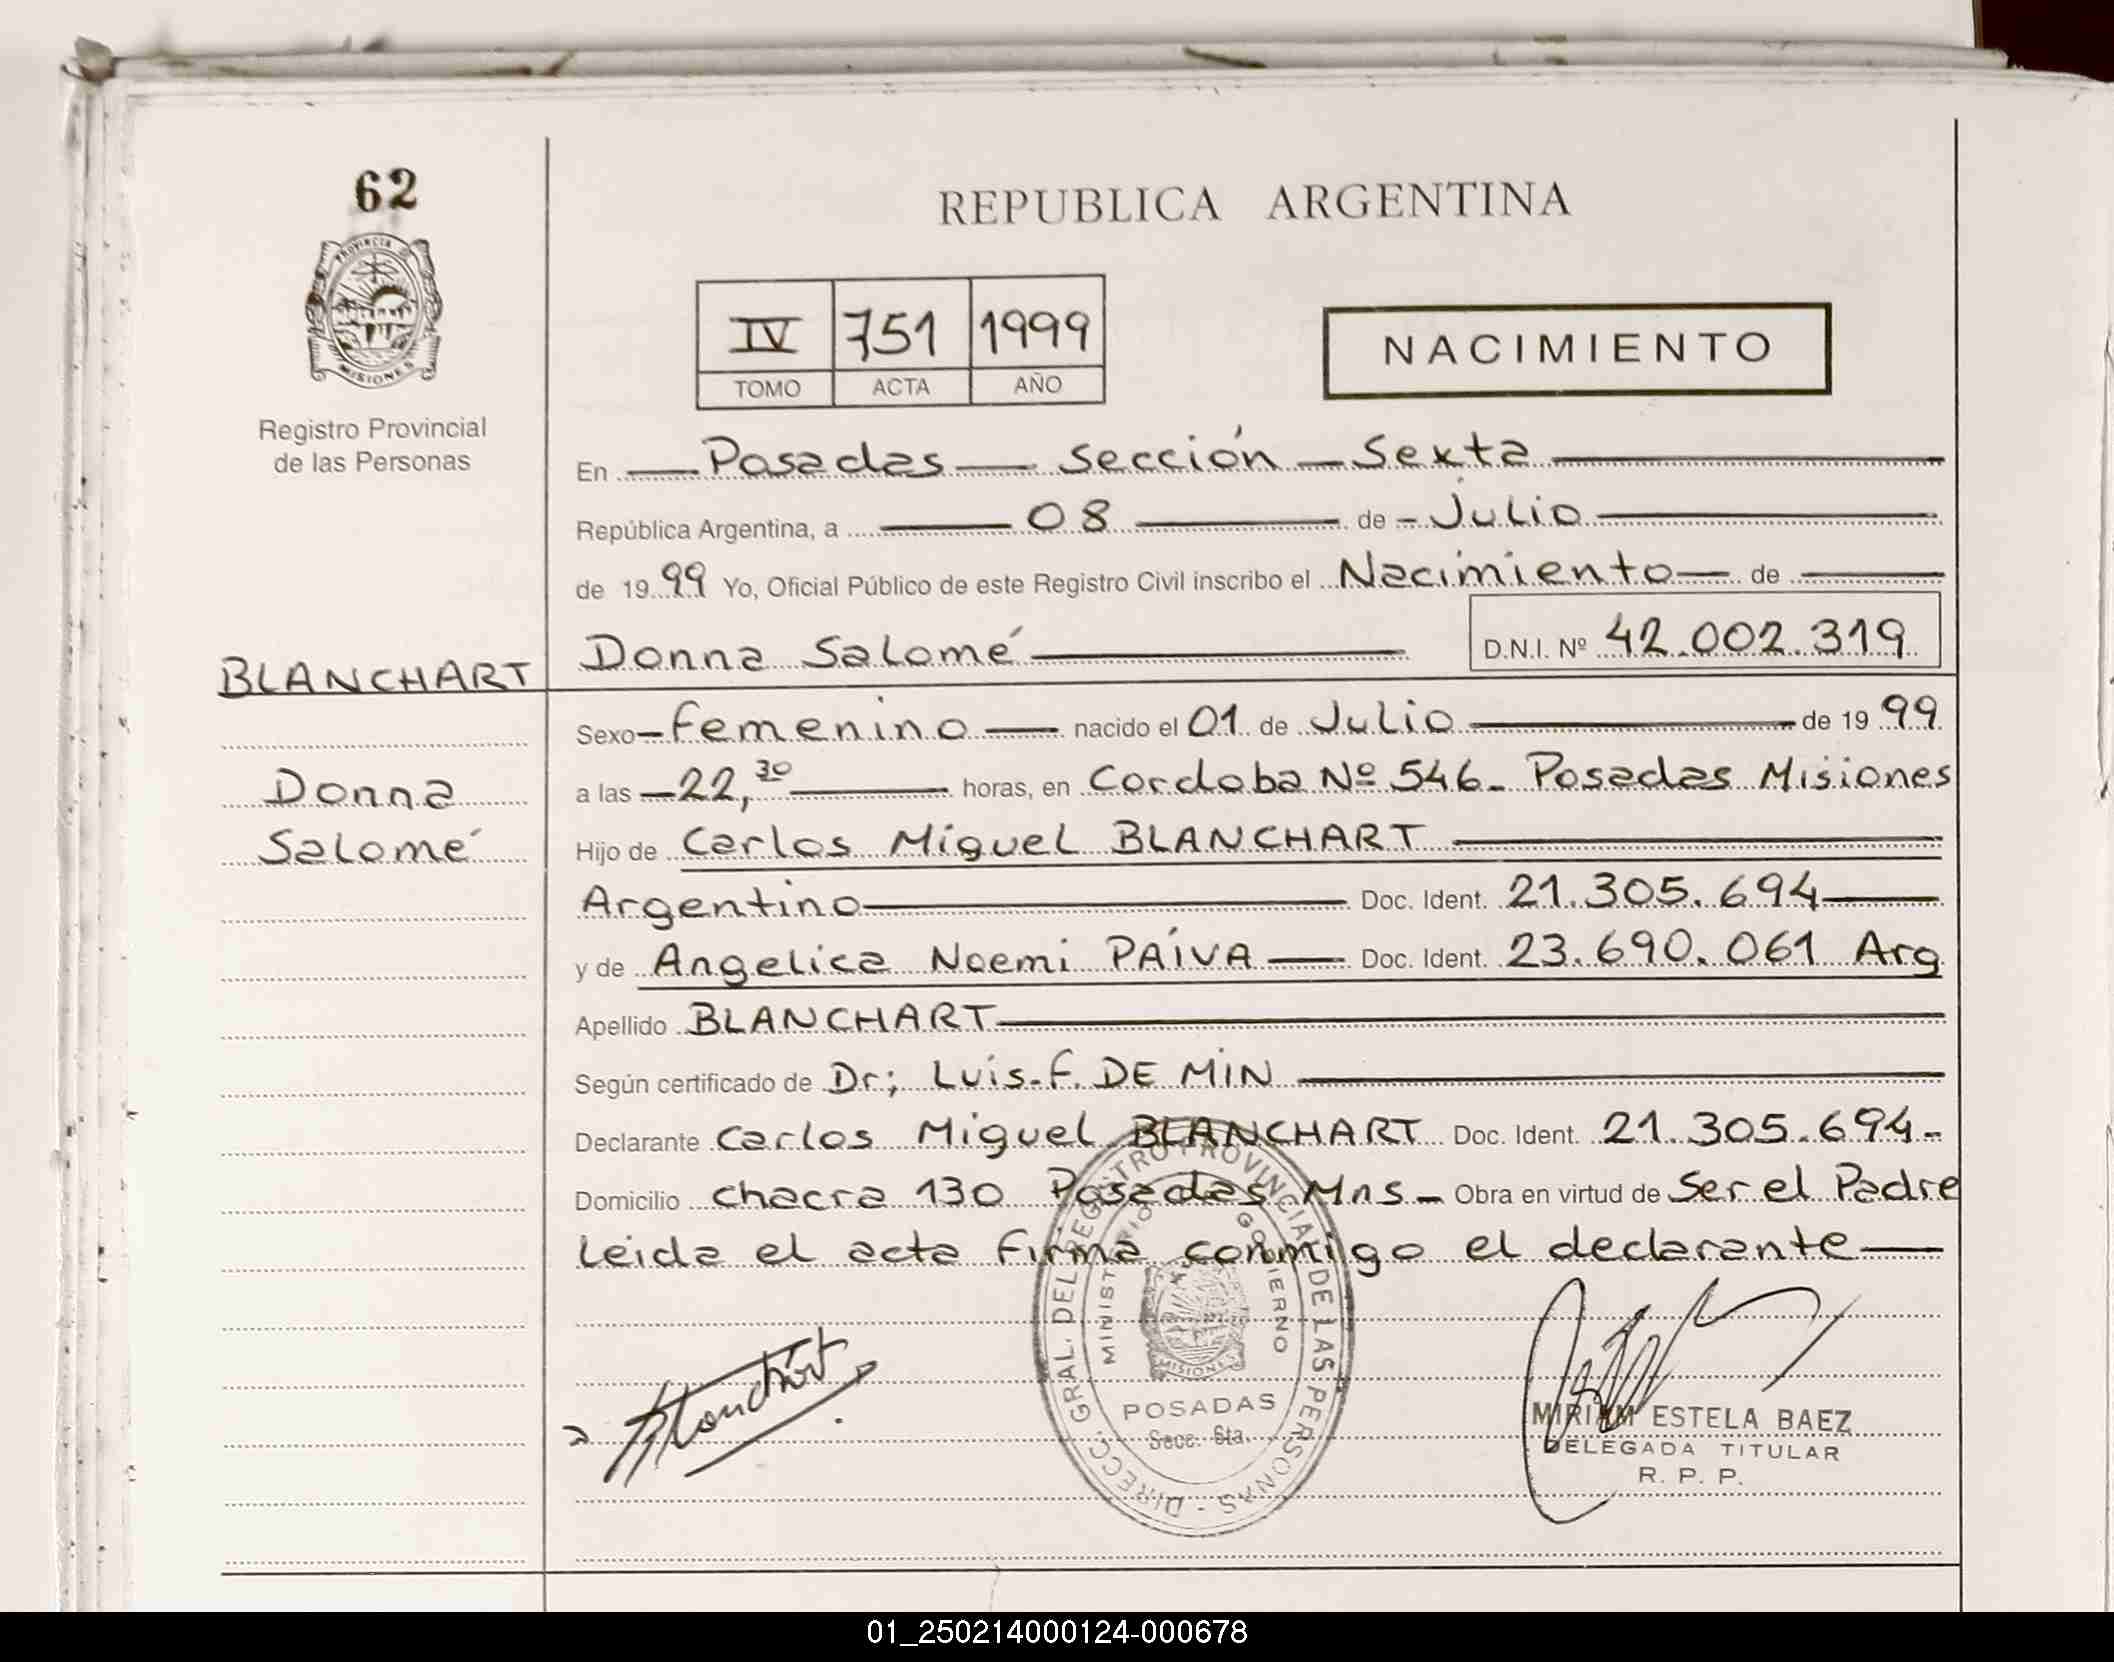 62
PROVINCIA DE
MISIONES
Registro Provincial
de las Personas
REPUBLICA ARGENTINA
IV 751 1999
TOMO ACTA AÑO
NACIMIENTO
En Posadas sección Sexta
República Argentina, a 08 de Julio
de 1999 Yo, Oficial Público de este Registro Civil inscribo el Nacimiento de
Donna Salomé D.N.I. Nº 42.002.319
BLANCHART
Donna
Salomé
Sexo Femenino nacido el 01 de Julio de 1999
a las 22,30 horas, en Cordoba Nº 546- Posadas Misiones
Hijo de Carlos Miguel BLANCHART
Argentino Doc. Ident. 21.305.694
y de Angelica Noemi PAIVA Doc. Ident. 23.690.061 Arg
Apellido BLANCHART
Según certificado de Dr; Luis-F. DE MIN
Declarante Carlos Miguel BLANCHART Doc. Ident. 21.305.694-
Domicilio chacra 130 Posadas Mns- Obra en virtud de Ser el Padre
Leida el acta firma conmigo el declarante
Blanchart
DIRECC. GRAL. DEL REGISTRO PROVINCIAL DE LAS PERSONAS -
MINISTERIO GOBIERNO
MISIONES
POSADAS
Secc. 6ta.
MIRIAM ESTELA BAEZ
DELEGADA TITULAR
R. P. P.
01_250214000124-000678